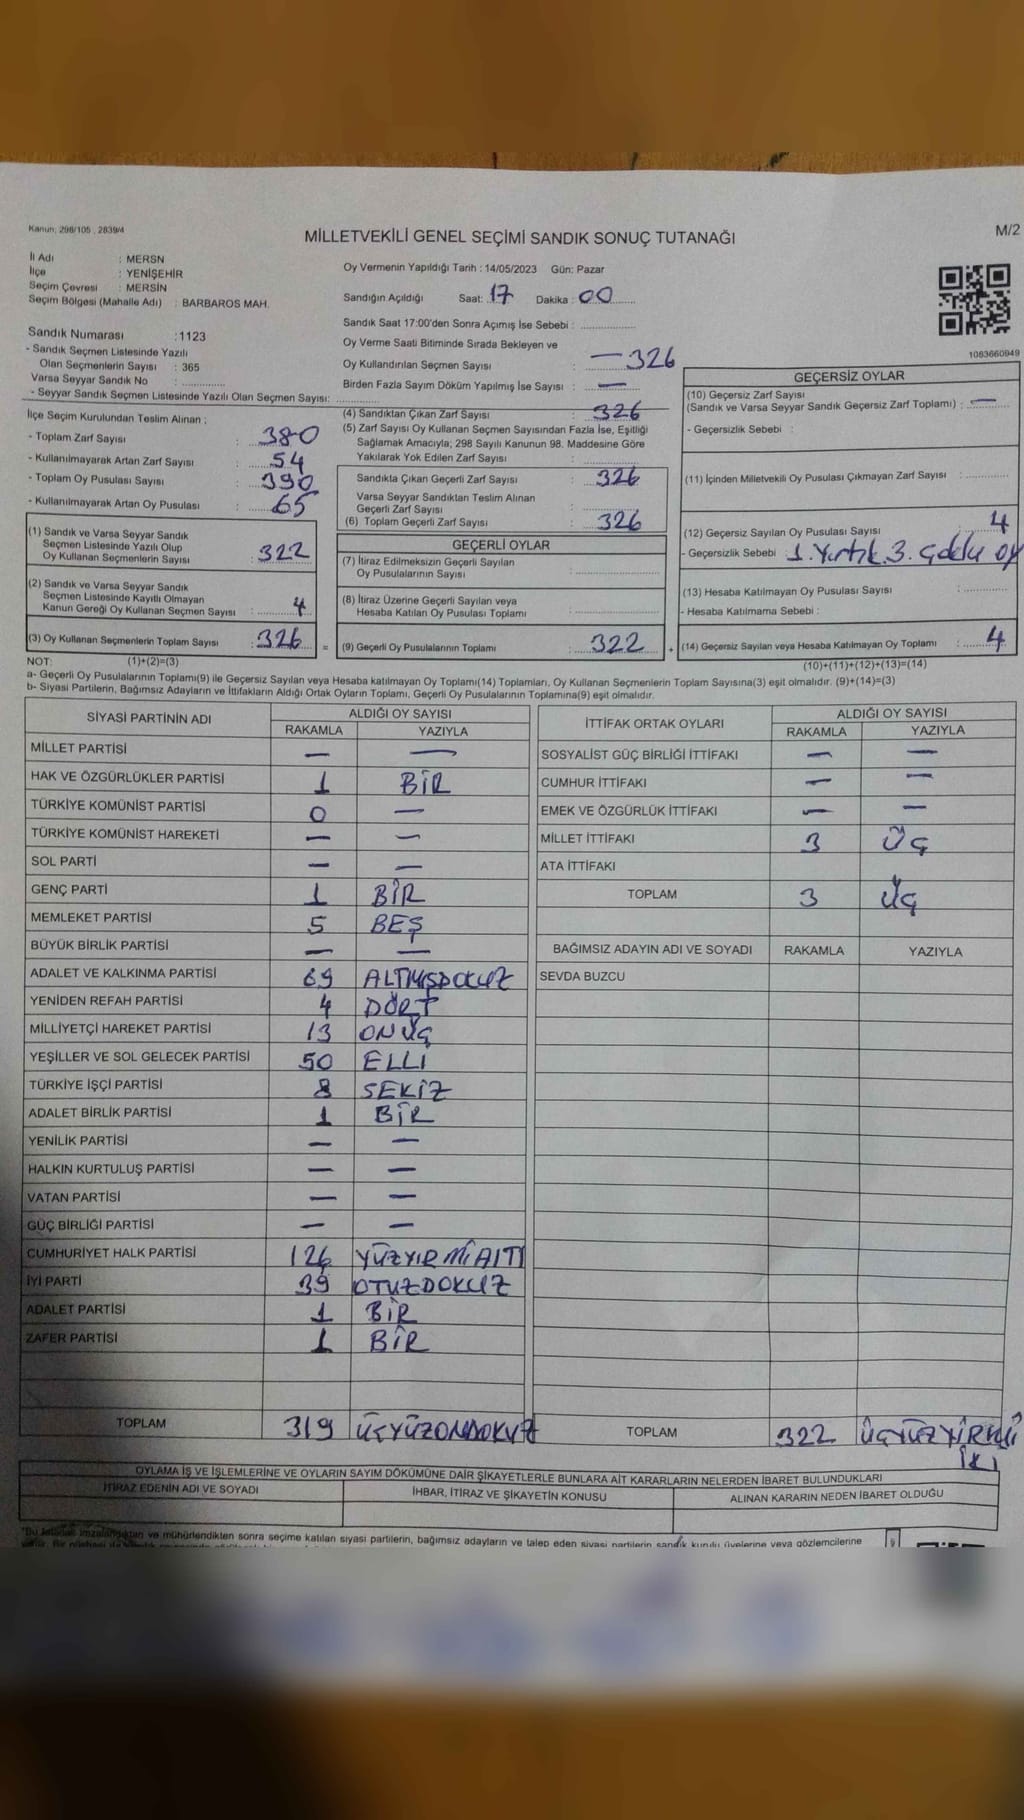 Kanun; 298/105 , 2839/4
MİLLETVEKİLİ GENEL SEÇİMİ SANDIK SONUÇ TUTANAĞI
M/2
İl Adı : MERSN
İlçe : YENİŞEHİR
Seçim Çevresi : MERSİN
Seçim Bölgesi (Mahalle Adı) : BARBAROS MAH.
Oy Vermenin Yapıldığı Tarih : 14/05/2023 Gün: Pazar
Sandığın Açıldığı Saat: 17 Dakika : 00
Sandık Saat 17:00'den Sonra Açımış İse Sebebi :
Sandık Numarası :1123
- Sandık Seçmen Listesinde Yazılı
Olan Seçmenlerin Sayısı : 365
Varsa Seyyar Sandık No :
- Seyyar Sandık Seçmen Listesinde Yazılı Olan Seçmen Sayısı:
Oy Verme Saati Bitiminde Sırada Bekleyen ve
Oy Kullandırılan Seçmen Sayısı : — 326
Birden Fazla Sayım Döküm Yapılmış İse Sayısı : —
1083660949
İlçe Seçim Kurulundan Teslim Alınan ;
- Toplam Zarf Sayısı : 380
- Kullanılmayarak Artan Zarf Sayısı : 54
- Toplam Oy Pusulası Sayısı : 390
- Kullanılmayarak Artan Oy Pusulası : 65
(1) Sandık ve Varsa Seyyar Sandık
Seçmen Listesinde Yazılı Olup
Oy Kullanan Seçmenlerin Sayısı : 322
(2) Sandık ve Varsa Seyyar Sandık
Seçmen Listesinde Kayıtlı Olmayan
Kanun Gereği Oy Kullanan Seçmen Sayısı : 4
(3) Oy Kullanan Seçmenlerin Toplam Sayısı : 326 =
(4) Sandıktan Çıkan Zarf Sayısı : 326
(5) Zarf Sayısı Oy Kullanan Seçmen Sayısından Fazla İse, Eşitliği
Sağlamak Amacıyla; 298 Sayılı Kanunun 98. Maddesine Göre
Yakılarak Yok Edilen Zarf Sayısı :
Sandıkla Çıkan Geçerli Zarf Sayısı : 326
Varsa Seyyar Sandıktan Teslim Alınan
Geçerli Zarf Sayısı :
(6) Toplam Geçerli Zarf Sayısı : 326
GEÇERLİ OYLAR
(7) İtiraz Edilmeksizin Geçerli Sayılan
Oy Pusulalarının Sayısı :
(8) İtiraz Üzerine Geçerli Sayılan veya
Hesaba Katılan Oy Pusulası Toplamı :
(9) Geçerli Oy Pusulalarının Toplamı : 322 +
GEÇERSİZ OYLAR
(10) Geçersiz Zarf Sayısı
(Sandık ve Varsa Seyyar Sandık Geçersiz Zarf Toplamı) : —
- Geçersizlik Sebebi :
(11) İçinden Milletvekili Oy Pusulası Çıkmayan Zarf Sayısı :
(12) Geçersiz Sayılan Oy Pusulası Sayısı : 4
- Geçersizlik Sebebi : 1. Yırtık. 3. çoklu oy
(13) Hesaba Katılmayan Oy Pusulası Sayısı :
- Hesaba Katılmama Sebebi :
(14) Geçersiz Sayılan veya Hesaba Katılmayan Oy Toplamı : 4
NOT: (1)+(2)=(3)
(10)+(11)+(12)+(13)=(14)
a- Geçerli Oy Pusulalarının Toplamı(9) ile Geçersiz Sayılan veya Hesaba katılmayan Oy Toplamı(14) Toplamları, Oy Kullanan Seçmenlerin Toplam Sayısına(3) eşit olmalıdır. (9)+(14)=(3)
b- Siyasi Partilerin, Bağımsız Adayların ve İttifakların Aldığı Ortak Oyların Toplamı, Geçerli Oy Pusulalarının Toplamına(9) eşit olmalıdır.
SİYASİ PARTİNİN ADI ALDIĞI OY SAYISI
RAKAMLA YAZIYLA
MİLLET PARTİSİ — —
HAK VE ÖZGÜRLÜKLER PARTİSİ 1 BİR
TÜRKİYE KOMÜNİST PARTİSİ 0 —
TÜRKİYE KOMÜNİST HAREKETİ — —
SOL PARTİ — —
GENÇ PARTİ 1 BİR
MEMLEKET PARTİSİ 5 BEŞ
BÜYÜK BİRLİK PARTİSİ — —
ADALET VE KALKINMA PARTİSİ 69 ALTMIŞDOKUZ
YENİDEN REFAH PARTİSİ 4 DÖRT
MİLLİYETÇİ HAREKET PARTİSİ 13 ONÜÇ
YEŞİLLER VE SOL GELECEK PARTİSİ 50 ELLİ
TÜRKİYE İŞÇİ PARTİSİ 8 SEKİZ
ADALET BİRLİK PARTİSİ 1 BİR
YENİLİK PARTİSİ — —
HALKIN KURTULUŞ PARTİSİ — —
VATAN PARTİSİ — —
GÜÇ BİRLİĞİ PARTİSİ — —
CUMHURİYET HALK PARTİSİ 126 YÜZYIRMİALTI
İYİ PARTİ 39 OTUZDOKUZ
ADALET PARTİSİ 1 BİR
ZAFER PARTİSİ 1 BİR
TOPLAM 319 ÜÇYÜZONDOKUZ
İTTİFAK ORTAK OYLARI ALDIĞI OY SAYISI
RAKAMLA YAZIYLA
SOSYALİST GÜÇ BİRLİĞİ İTTİFAKI — —
CUMHUR İTTİFAKI — —
EMEK VE ÖZGÜRLÜK İTTİFAKI — —
MİLLET İTTİFAKI 3 ÜÇ
ATA İTTİFAKI
TOPLAM 3 ÜÇ
BAĞIMSIZ ADAYIN ADI VE SOYADI RAKAMLA YAZIYLA
SEVDA BUZCU
TOPLAM 322 ÜÇYÜZYİRMİ
İKİ
OYLAMA İŞ VE İŞLEMLERİNE VE OYLARIN SAYIM DÖKÜMÜNE DAİR ŞİKAYETLERLE BUNLARA AİT KARARLARIN NELERDEN İBARET BULUNDUKLARI
İTİRAZ EDENİN ADI VE SOYADI İHBAR, İTİRAZ VE ŞİKAYETİN KONUSU ALINAN KARARIN NEDEN İBARET OLDUĞU
"Bu tutanak imzalandıktan ve mühürlendikten sonra seçime katılan siyasi partilerin, bağımsız adayların ve talep eden siyasi partilerin sandık kurulu üyelerine veya gözlemcilerine